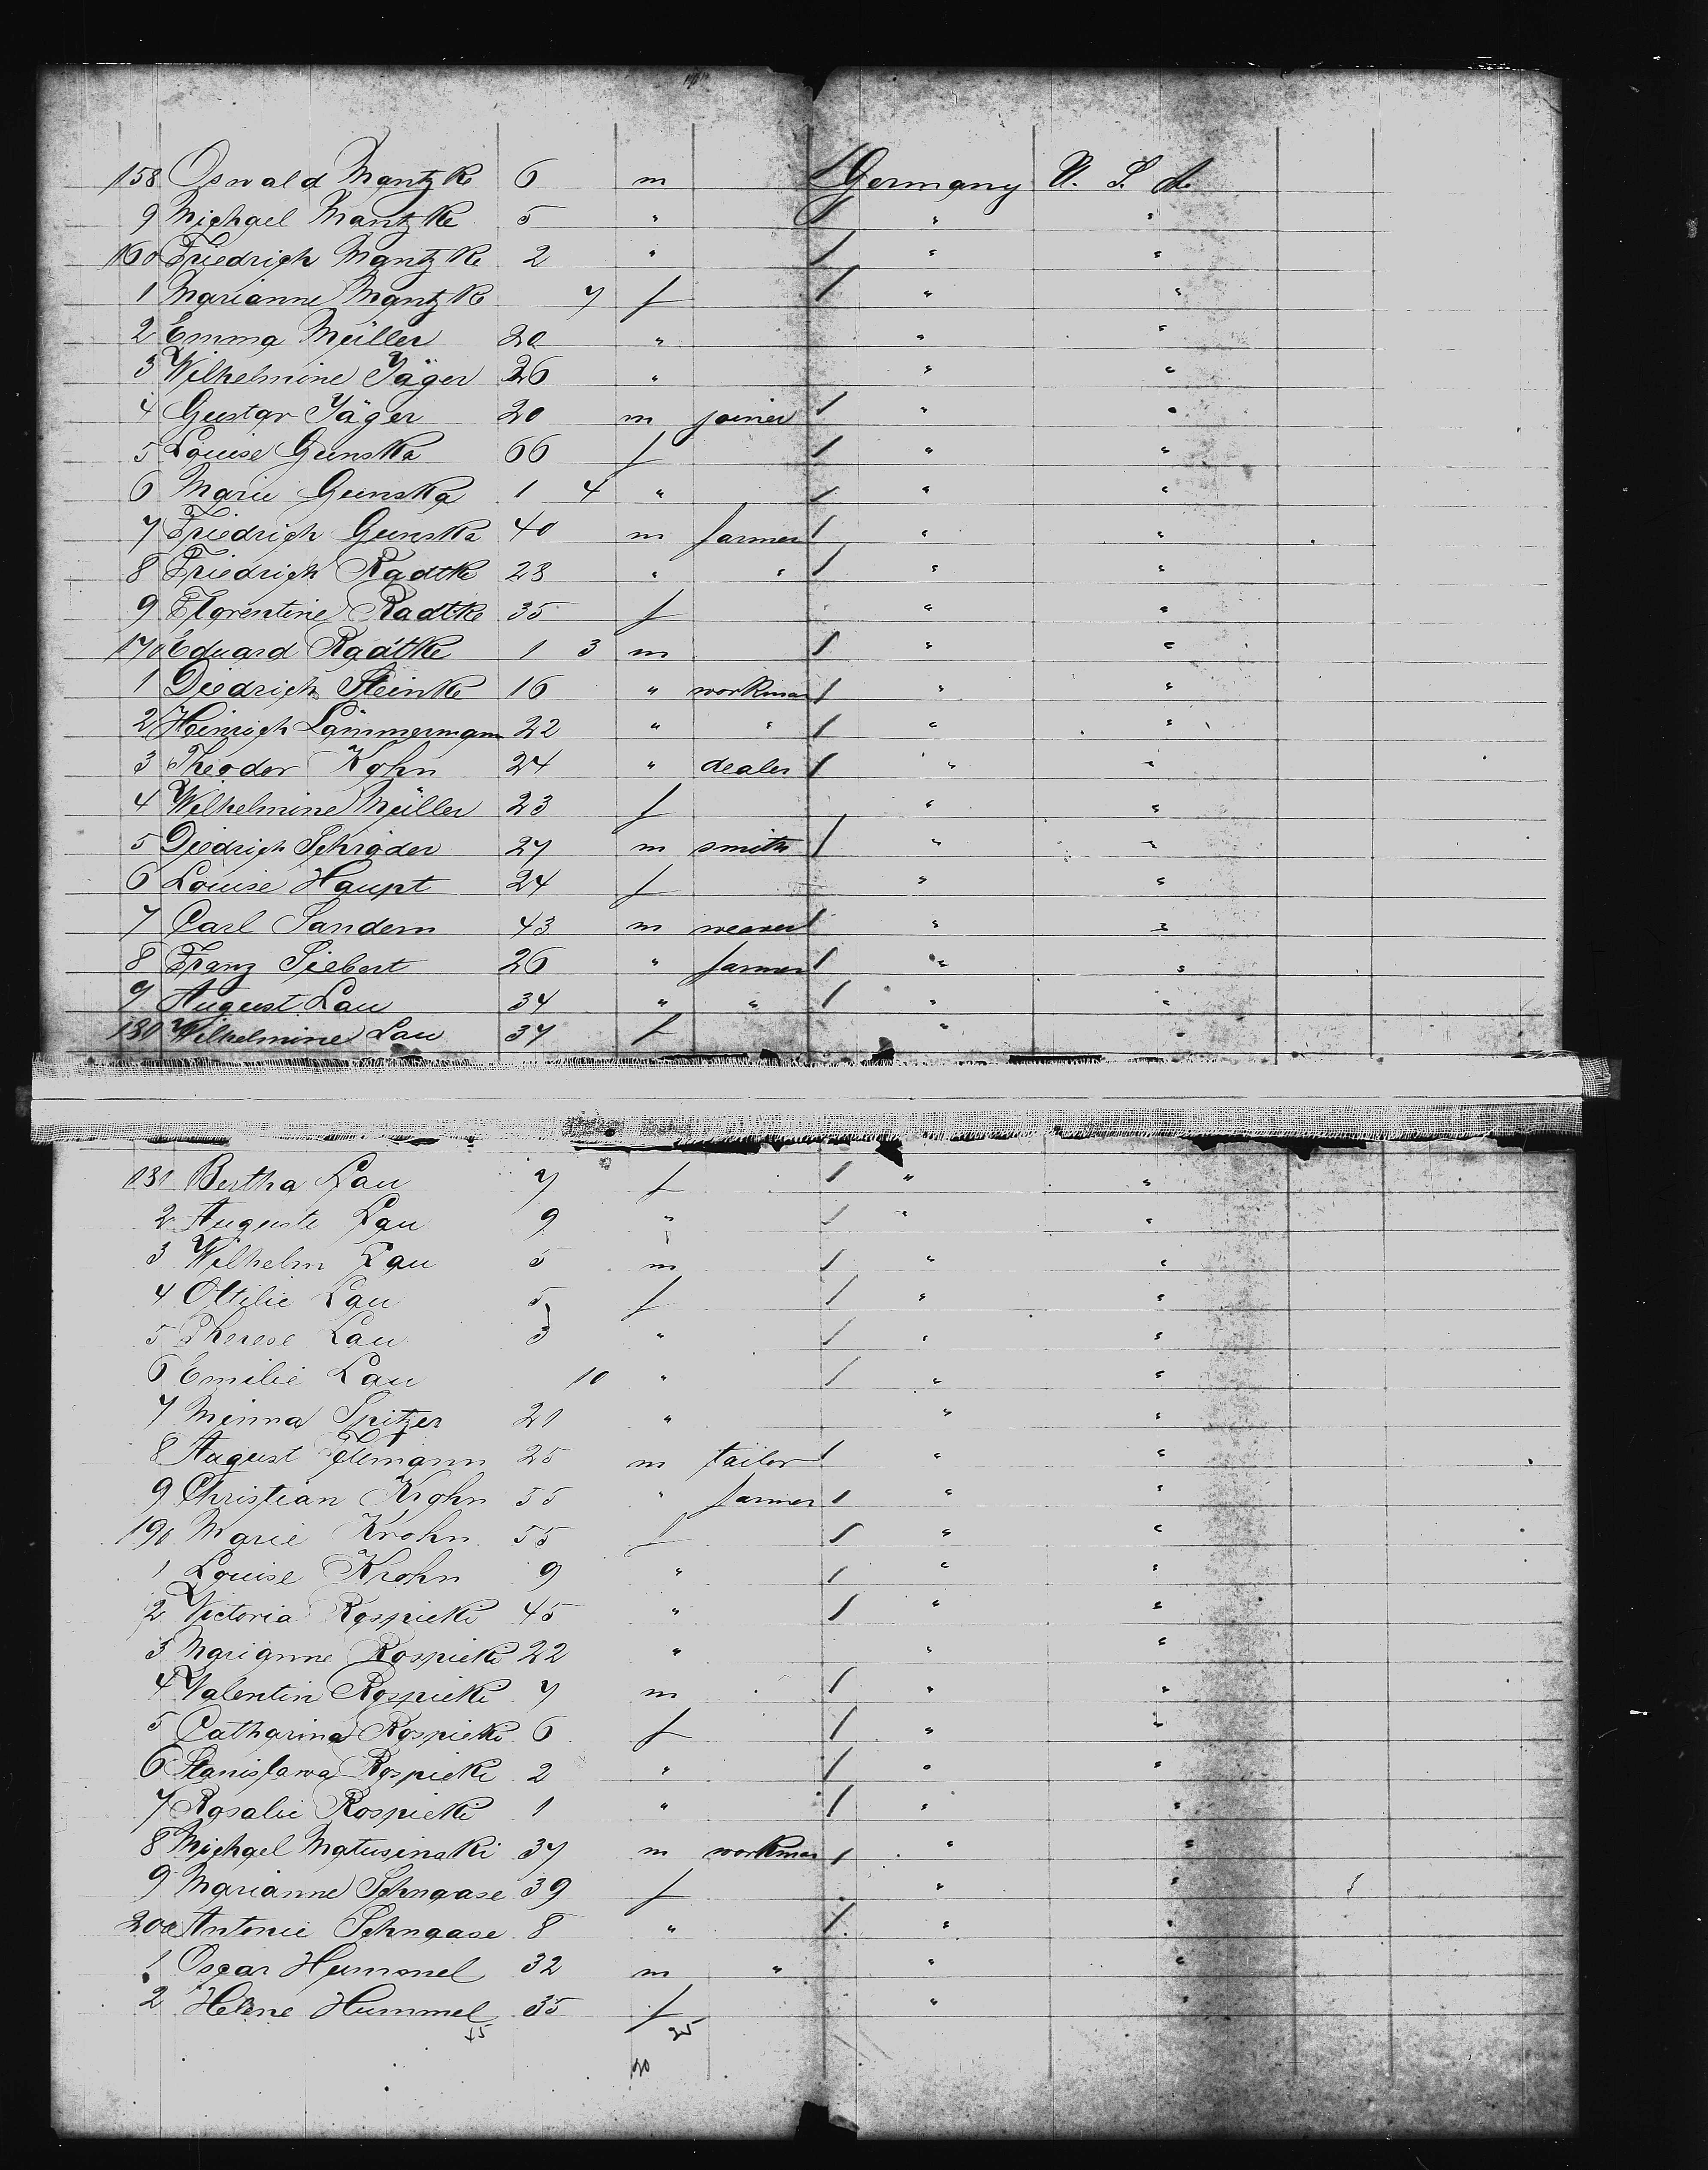 158 Oswald Mantzke 6 m Germany U. S. A.
9 Michael Mantzke 5 " " "
160 Friedrich Mantzke 2 " " "
1 Marianne Mantzke 7 f " "
2 Emma Müller 20 " " "
3 Wilhelmine Jäger 26 " " "
4 Gustav Jäger 20 m joiner " "
5 Louise Gunska 66 f " "
6 Marie Gunska 1 4 " " "
7 Friedrich Gunska 40 m farmer " "
8 Friedrich Radtke 28 " " " "
9 Florentine Radtke 35 f " "
170 Eduard Radtke 1 3 m " "
1 Diedrich Steinke 16 " workman " "
2 Heinrich Lämmermann 22 " " " "
3 Theodor Kohn 24 " dealer " "
4 Wilhelmine Müller 23 f " "
5 Diedrich Schröder 27 m smith " "
6 Louise Haupt 24 f " "
7 Carl Sandern 43 m weaver " "
8 Franz Siebert 26 " farmer " "
9 August Lau 34 " " " "
180 Wilhelmine Lau 37 f " "
181 Bertha Lau 7 f " "
2 Auguste Lau 9 " " "
3 Wilhelm Lau 5 m " "
4 Ottilie Lau 5 f " "
5 Therese Lau 3 " " "
6 Emilie Lau 10 " " "
7 Minna Spitzer 21 " " "
8 August 25 m tailor " "
9 Christian Krohn 55 " farmer " "
190 Marie Krohn 55 f " "
1 Louise Krohn 9 " " "
2 Victoria Rospicki 45 " " "
3 Marianne Rospicki 22 " " "
4 Valentin Rospicki 7 m " "
5 Catharina Rospicki 6 f " "
6 Stanislawa Rospicki 2 " " "
7 Rosalie Rospicki 1 " " "
8 Michael Matusinski 37 m workman " "
9 Marianne Schnaase 39 f " "
200 Antonie Schnaase 8 " " "
1 Oscar Hummel 32 m " " "
2 Helene Hummel 35 f " "
45 25
20